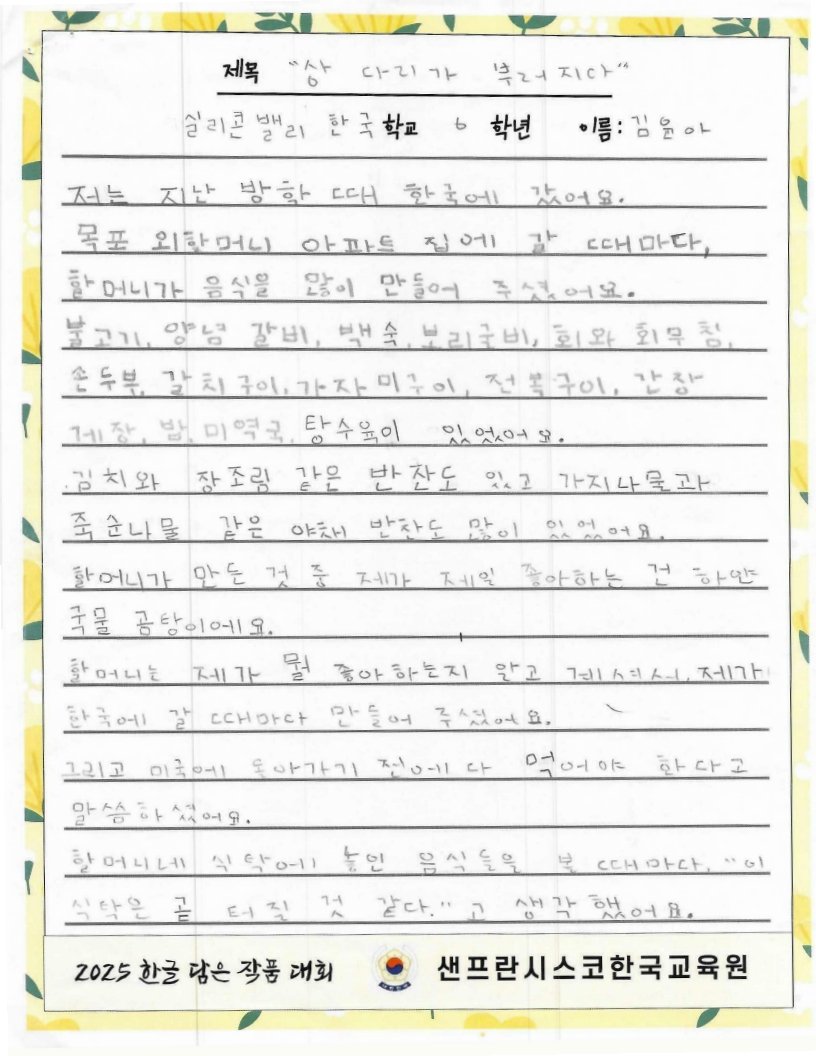 제목 "상 다리가 부러지다"
실리콘밸리 한국학교 6 학년 이름: 김윤아
저는 지난 방학 때 한국에 갔어요.
목포 외할머니 아파트 집에 갈 때마다,
할머니가 음식을 많이 만들어 주셨어요.
불고기, 양념 갈비, 백숙, 보리굴비, 회와 회무침,
손두부, 갈치구이, 가자미구이, 전복구이, 간장
게장, 밥, 미역국, 탕수육이 있었어요.
김치와 장조림 같은 반찬도 있고 가지나물과
죽순나물 같은 야채 반찬도 많이 있었어요.
할머니가 만든 것 중 제가 제일 좋아하는 건 하얀
국물 곰탕이에요.
할머니는 제가 뭘 좋아하는지 알고 계셔서, 제가
한국에 갈 때마다 만들어 주셨어요.
그리고 미국에 돌아가기 전에 다 먹어야 한다고
말씀하셨어요.
할머니네 식탁에 놓인 음식들을 볼 때마다, "이
식탁은 곧 터질 것 같다." 고 생각했어요.
2025 한글 담은 작품 대회
샌프란시스코한국교육원